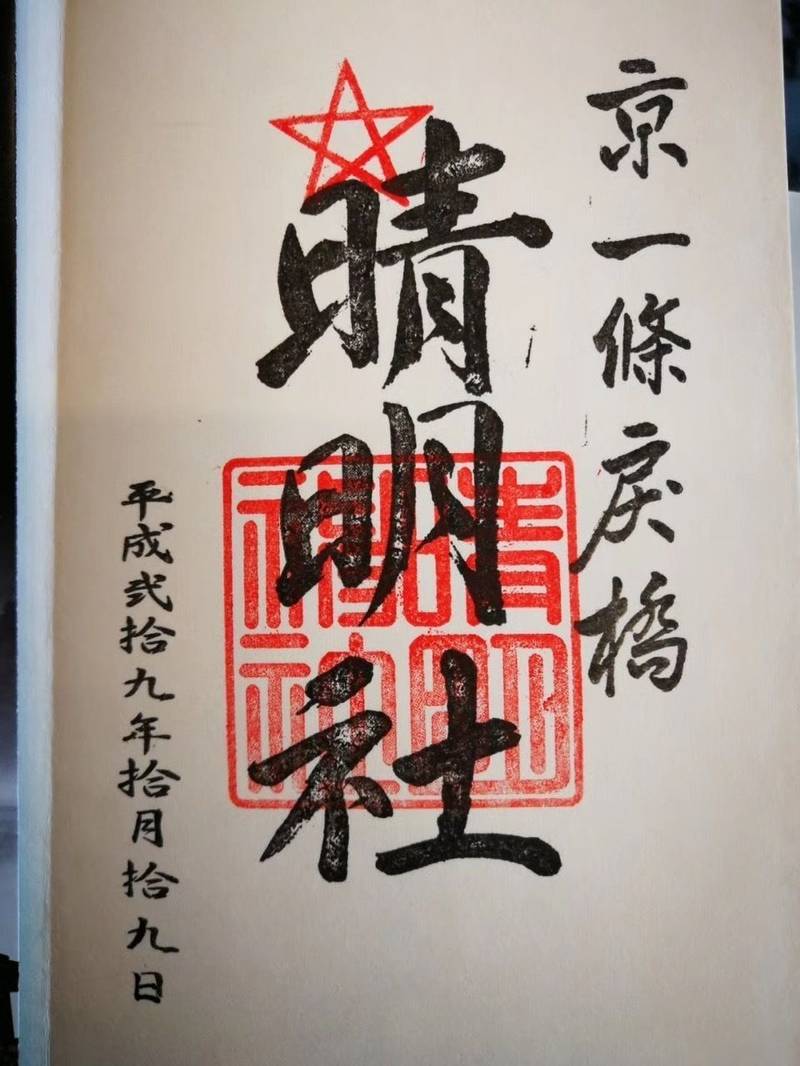 京一條戻橋
晴明社
平成弐拾九年拾月拾九日